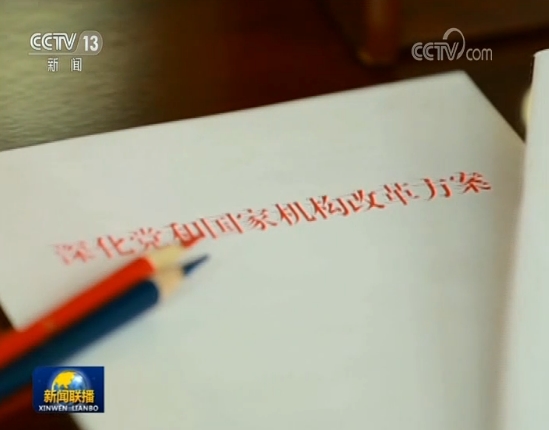 CCTV 13
新闻
CCTV.com
深化党和国家机构改革方案
新闻联播
XINWEN LIANBO